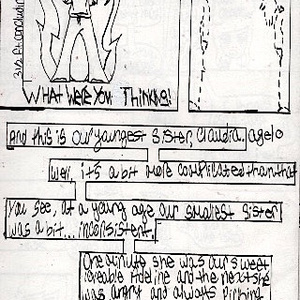 WHAT WERE YOU THINKING!
And this is our youngest sister, Claudia. age 10
Well, it's a bit more complicated than that
You see, at a young age our smallest sister
was a bit... inconsistent.
One minute she was our sweet
and the next she
was angry and always picking